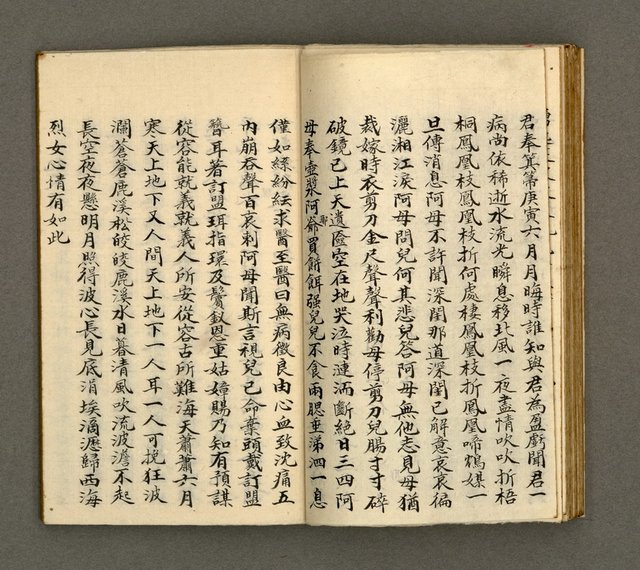 君奉箕箒庚寅六月月晦時誰知與君為盈虧聞君一
病尚依稀逝水流光瞬息移北風一夜盡情吹吹折梧
桐鳳凰枝鳳凰枝折何處棲鳳凰枝折鳳凰啼鴆媒一
旦傳消息阿母不許聞深閨那道深閨已解意哀哀徧
灑湘江淚阿母問兒何其悲兒答阿母無他志見母猶
裁嫁時衣剪刀金尺聲聲利勸母停剪刀兒腸寸寸碎
破鏡已上天遺奩空在地哭泣時漣洏斷絕日三四阿
母奉壺漿阿爺買餅餌强兒兒不食兩腮垂涕泗一息
僅如絲紛紜求醫至醫曰無病徵良由心血致沈痛五
內崩吞聲百哀刺阿母聞斯言視兒已命棄頭戴訂盟
簪耳著訂盟珥指環及鬢釵恩重姑嫜賜乃知有預謀
從容能就義就義人所安從容古所難海天蕭蕭六月
寒天上地下又人間天上地下一人耳一人可挽狂波
瀾蒼蒼鹿溪松皎皎鹿溪水日暮清風吹流波澹不起
長空夜夜懸明月照得波心長見底涓埃滴瀝歸西海
烈女心情有如此